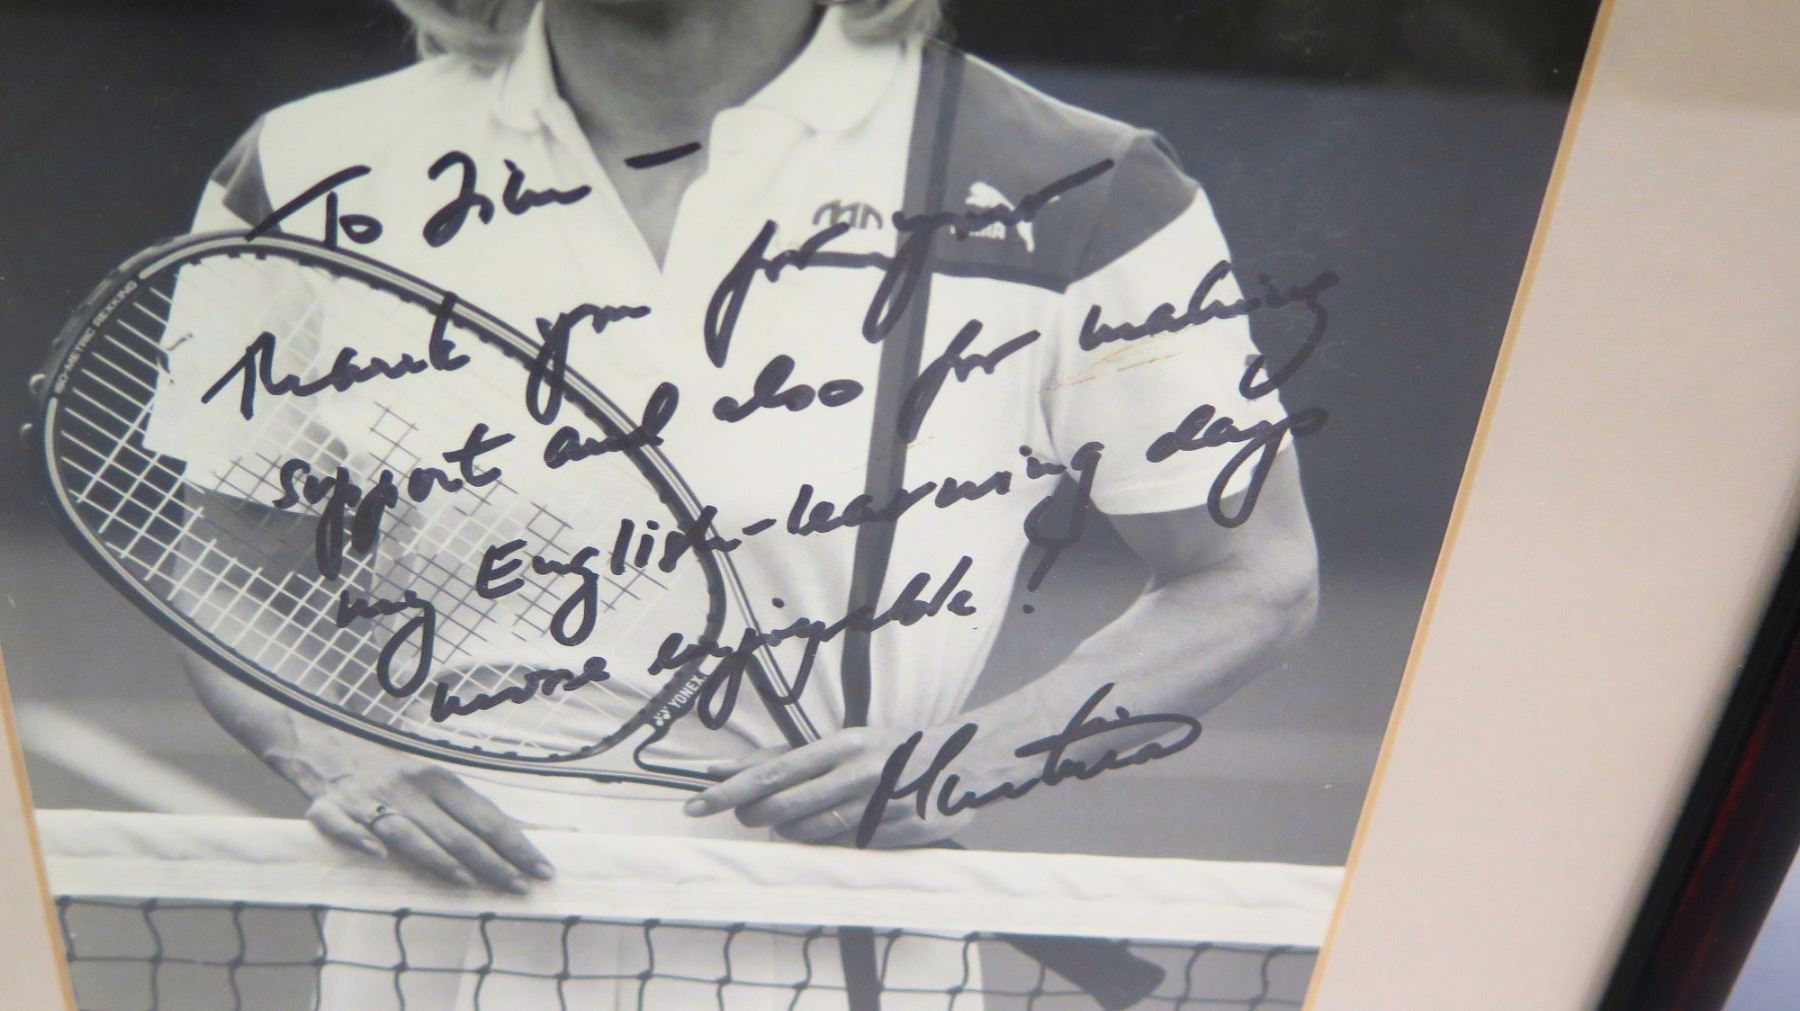 To Jim —
Thank you for your
support and also for making
my English-learning days
more enjoyable!
Martina
MN
PUMA
ISO-METRIC REXKING
YONEX